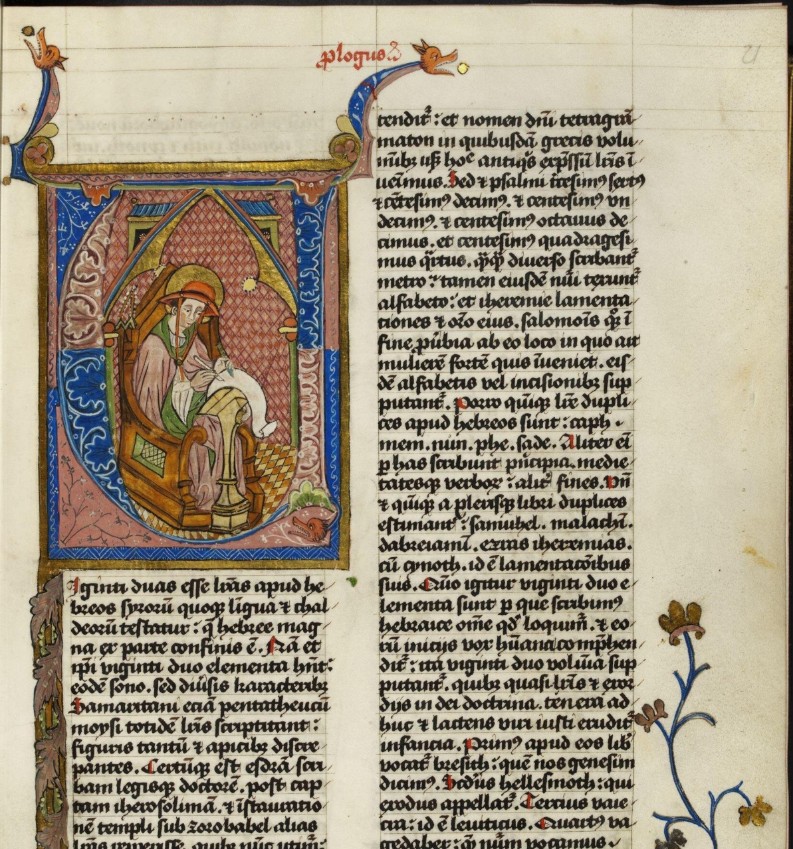 plogus
U
Iginti duas esse lr̃as apud he
breos syrorũ quoqꝫ lĩgua ⁊ chal
deorũ testatur : q̃ hebree mag
na ex parte confinis ẽ. Nã et
ip̃i viginti duo elementa hñt:
eodẽ sono. sed diũsis karacteribꝫ
Samaritani eciã pentatheucũ
moysi totidẽ lr̃is scriptitant :
figuris tantũ ⁊ apicibꝫ discre
pantes. Certũqꝫ est esdrã scri
bam legisqꝫ doctorẽ. post cap
tam iherosolimã. ⁊ ĩstauratio
nẽ templi sub zorobabel alias
lr̃as reperisse. quibꝫ nũc utim̃:
tendit᷑ : et nomen dñi tetragrã
maton in quibusdã grecis volu
mĩbꝫ usqꝫ hoᵉ antiq̃s exp̃ssũ lr̃is ĩ
uẽimus. Sed ⁊ psalmi tr̃esimꝰ sextꝰ
⁊ cẽtesimꝰ decimꝰ. ⁊ centesimꝰ vn
decimꝰ. ⁊ centesimꝰ octauus de
cimus. et centesimꝰ quadragesi
mus q̃rtus. q̃q̃ diuerso scribant᷑
metro : tamen eiusdẽ nũi texunt᷑
alfabeto : et iheremie lamenta
tiones ⁊ orõ eius. salomoĩs qꝫ ĩ
fine ꝓũbia ab eo loco in quo ait
mulierẽ fortẽ quis ĩueniet. eis
dẽ alfabetis vel incisionibꝫ sup
putant᷑. Porro quĩqꝫ lr̃e dupli
ces apud hebreos sunt : caph .
mem. nun. phe. sade. Aliter eĩ
ꝑ has scribunt p̃ncipia. medie
tatesqꝫ verboꝝ : alit᷑ fines. Vñ
⁊ quĩqꝫ a plerisqꝫ libri duplices
estimant᷑ : samuhel. malachĩ.
dabreiamĩ. ezras iheremias.
cũ cynoth. id ẽ lamentacõibus
suis. Quõ igitur viginti duo e
lementa sunt ꝑ que scribimꝰ
hebraice om̃e qd̃ loquim᷑. ⁊ eo
rũ iniciis vox hũana comp̃hen
dit᷑ : ita viginti duo volũia sup
putant᷑. quibꝫ quasi lr̃is ⁊ exor
dijs in dei doctrina. tenera ad
huc ⁊ lactens viri iusti erudit᷑
infancia. Primꝰ apud eos lib᷑
vocat᷑ bresith : quẽ nos genesim
dicimꝰ. Scd̃us hellesmoth : qui
exodus appellat᷑. Tercius vaie
cra : id ẽ leuiticus. Quartꝰ va
gedaber : q̃ nũm vocamus .